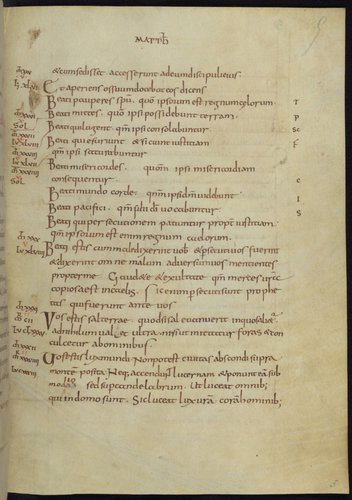 MATTH
& cum sedisset accesserunt ad eum discipuli eius
Et aperiens os suum docebat eos dicens
Beati pauperes spu. quo ipsorum est regnum celorum
Beati mites. quo ipsi possidebunt terram.
Beati qui lugent qm ipsi consolabuntur
Beati qui esuriunt & sitiunt iustitiam
qm ipsi saturabuntur
Beati misericordes. quom ipsi misericordiam
consequentur.
Beati mundo corde. qm ipsi dm videbunt
Beati pacifici. qm filii di vocabuntur
Beati qui persecutionem patiuntur propt iustitiam
qm ipsorum est enim regnum caelorum.
Beati estis cum maledixerint vob & persecuti vos fuerint
& dixerint omne malum adversum vos mentientes
propter me Gaudete & exultate qm merces urã
copiosa est in caelis. Sic enim persecuti sunt prophe
tas qui fuerunt ante vos
Vos estis sal terrae quod si sal evanuerit in quo sali&ur
ad nihilum val& ultra nisi ut mittatur foras & con
culcetur ab ominibus
Vos estis lux mundi Non potest civitas abscondi supra
monte posita Neq; accendunt lucernam & ponunt ea sub
modio sed sup candelabrum. Ut luceat omnib;
qui in domo sunt. Sic luceat lux urã coram hominib;
T
P
SC
F
C
I
S
SOL
SOL